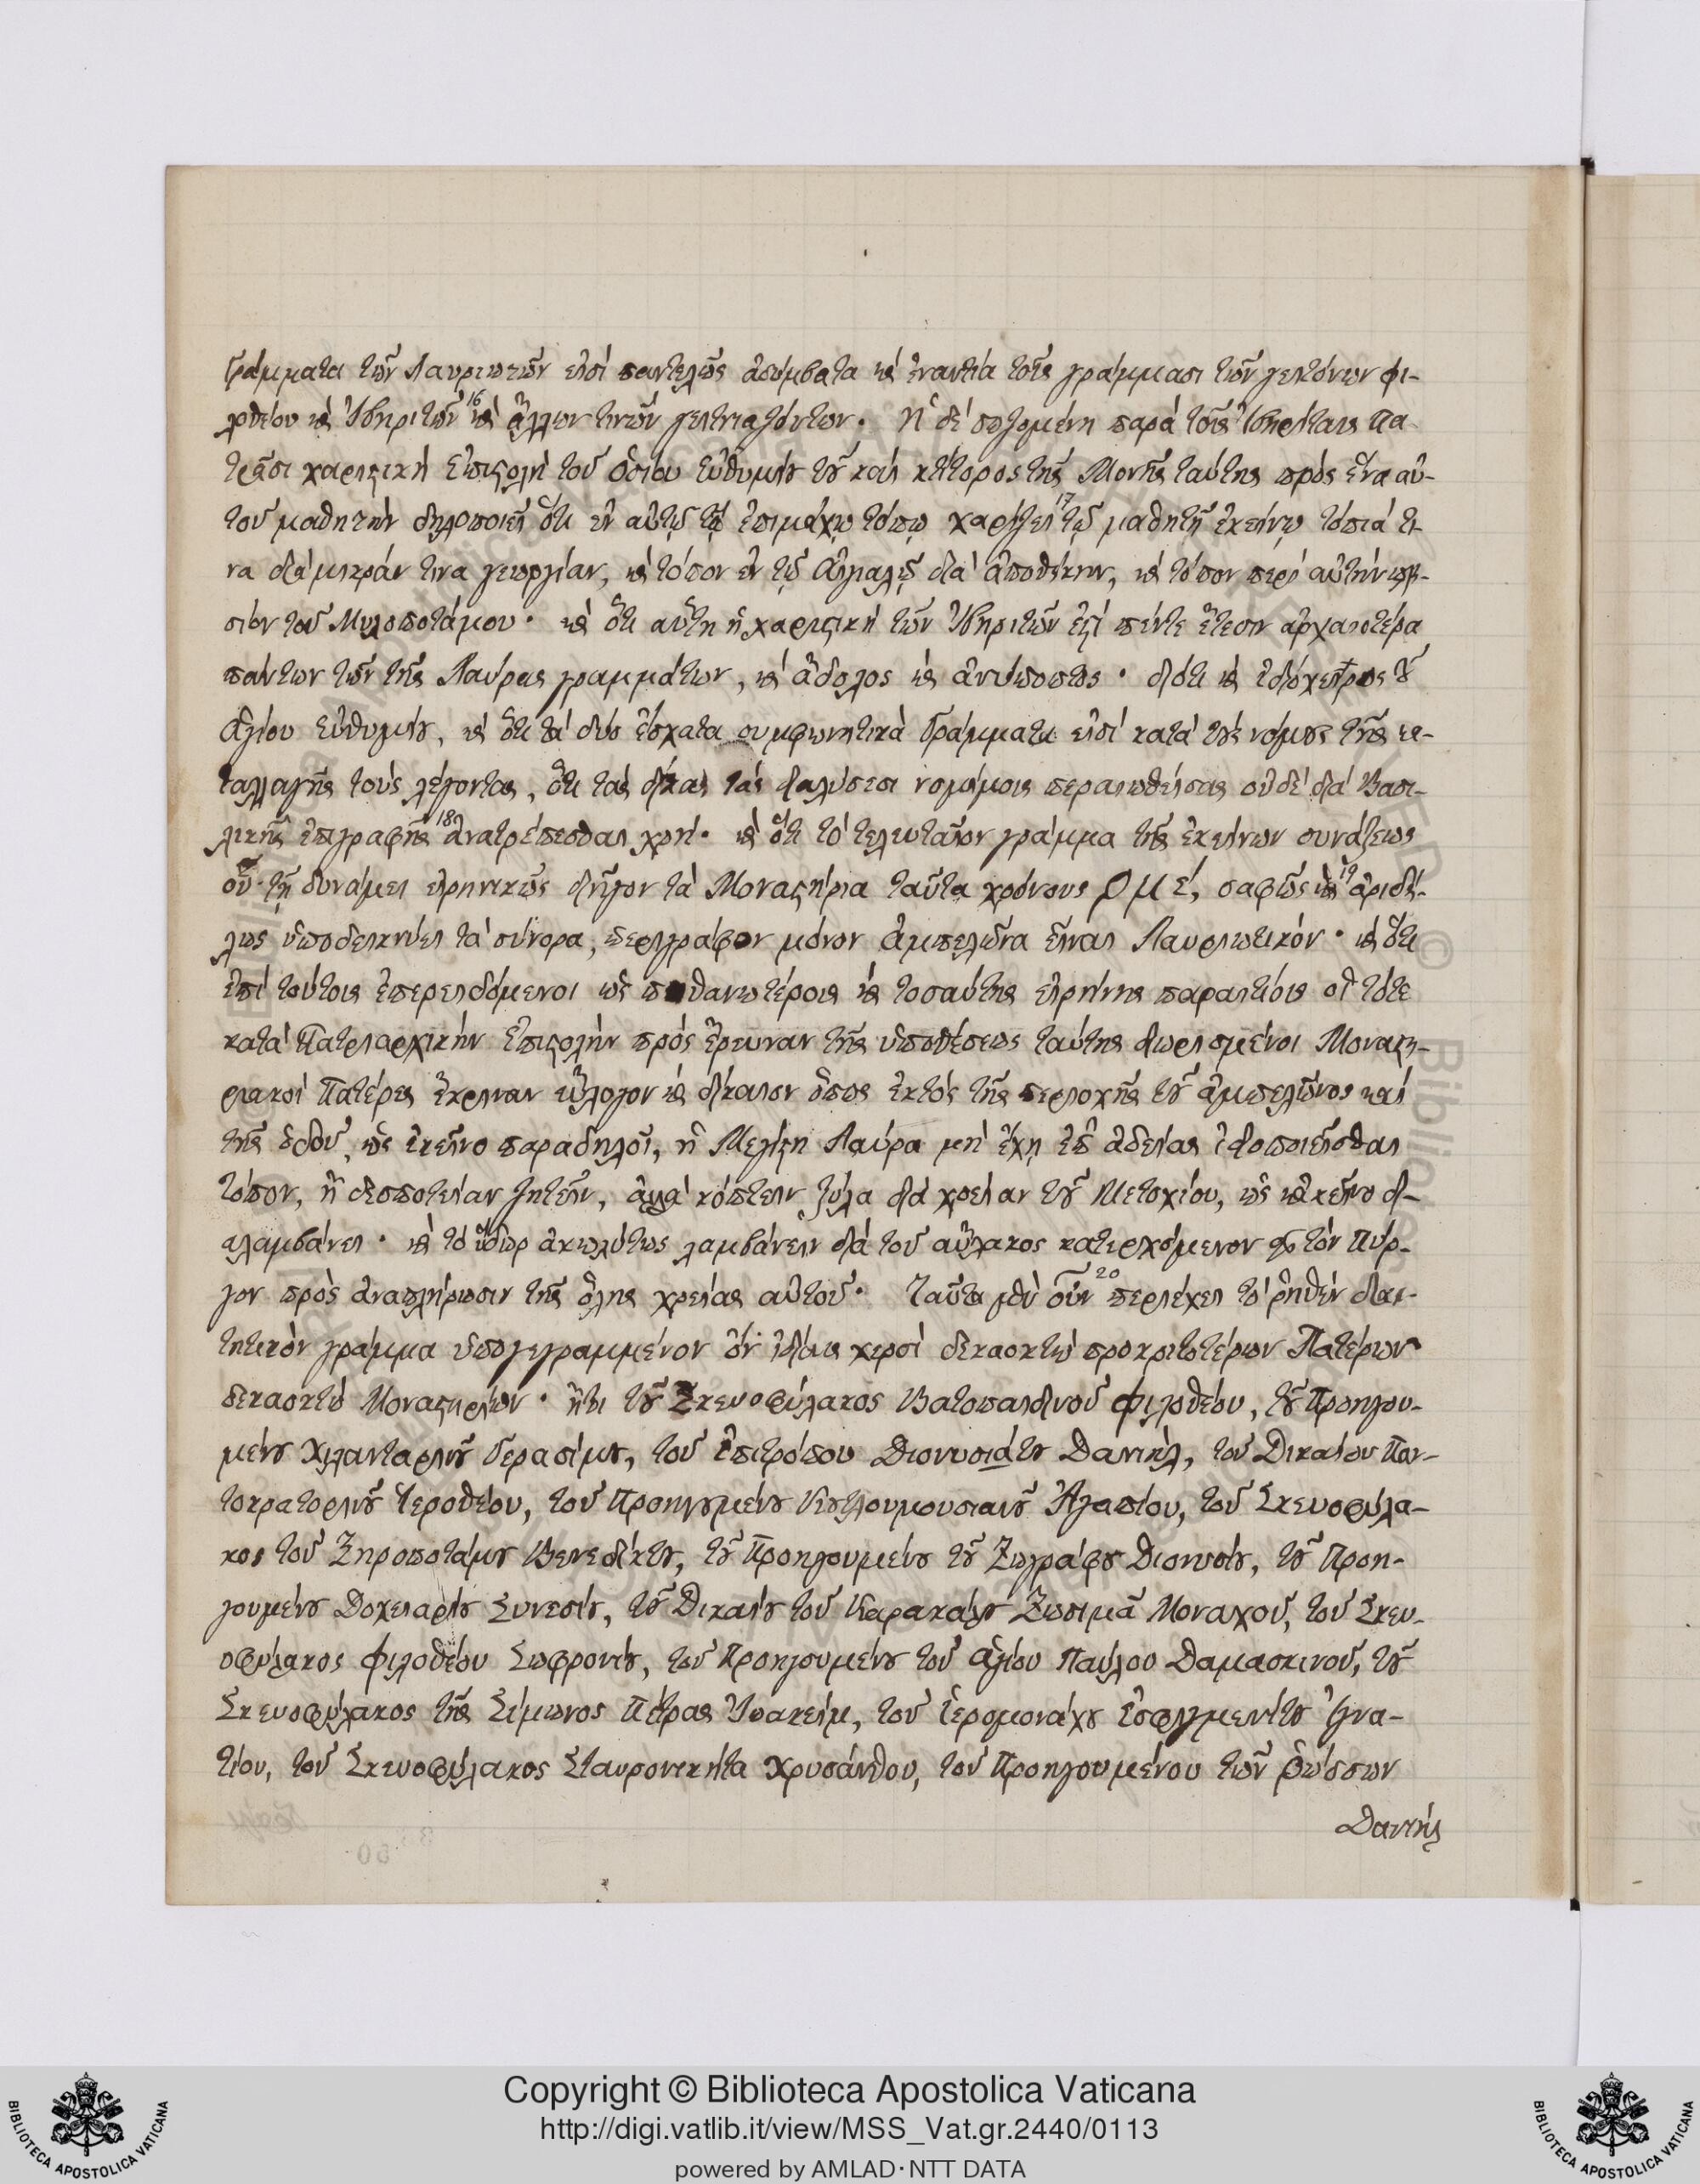 Γράμματα τῶν Λαυριωτῶν εἰσί παντελῶς ἀσύμβατα κὶ ἐναντία τοῖς γράμμασι τῶν γειτόνων Φι-
λοθέου κὶ Ἰβηριτῶν 16 κὶ ἄλλων τινῶν γειτνιαζόντων· Ἡ δέ σωζομένη παρά τοῖς Ἰβηρίταις Πα-
τράσι χαριστική Ἐπιστολή τοῦ ὁσίου Εὐθυμίου τοῦ καί κτίτορος τῆς Μονῆς ταύτης πρός ἕνα αὐ-
τοῦ μαθητήν δηλοποιεῖ ὅτι ἐν αὐτῷ τῷ ἐπιμάχῳ τόπῳ χαρίζει 17 τῷ μαθητῇ ἐκείνῳ τόπιά τι-
να διά μικράν τινα γεωργίαν, κὶ τόπον ἐν τῷ Αἰγιαλῷ διά ἀποθήκην, κὶ τόπον περί αὐτήν πλη-
σίον τοῦ Μυλοποτάμου· κὶ ὅτι αὕτη ἡ χαριστική τῶν Ἰβηριτῶν ἐστί πέντε ἔτεσιν ἀρχαιοτέρα
πάντων τῶν τῆς Λαύρας γραμμάτων, κὶ ἄδολος κὶ ἀνύποπτος· διότι κὶ ἰδιόχειρος τοῦ
Ἁγίου Εὐθυμίου, κὶ ὅτι τά δύο ἔσχατα συμφωνητικά Γράμματα εἰσί κατά τούς νόμους τῆς
ταλλαγῆς τούς λέγοντας, ὅτι τάς δίκας τάς διαλύσεσι νομίμοις περαιωθείσας οὐδέ διά Βασι-
λικῆς ἐπιγραφῆς 18 ἀνατρέπεσθαι χρή· κὶ ὅτι τό τελευταῖον γράμμα τῆς ἐκείνων συνάξεως
οὗ τῇ δυνάμει εἰρηνικῶς διῆγον τά Μοναστήρια ταῦτα χρόνους ρμέ, σαφῶς κὶ 19 ἀριδή-
λως ὑποδεικνύει τά σύνορα, περιγράφον μόνον ἀμπελῶνα εἶναι Λαυριωτικόν· κὶ ὅτι
ἐπί τούτοις ἐπερειδόμενοι ὡς πιθανωτέροις κὶ τοσαύτης εἰρήνης παραιτίοις οἱ τότε
κατά Πατριαρχικήν Ἐπιστολήν πρός ἔρευναν τῆς ὑποθέσεως ταύτης διωρισμένοι Μοναστη-
ριακοί Πατέρες ἔκριναν εὔλογον κὶ δίκαιον ὅπως ἐκτός τῆς περιοχῆς τοῦ ἀμπελῶνος καί
τῆς ὁδοῦ, ὡς ἐκεῖνο παραδηλοῖ, ἡ Μεγίστη Λαύρα μή ἔχῃ ἐπ' ἀδείας ἰδιοποιεῖσθαι
τόπον, ἤ δεσποτείαν ζητεῖν, ἀλλά κόπτειν ξύλα διά χρείαν τοῦ Μετοχίου, ὡς κἀκεῖνο δι-
αλαμβάνει· κὶ τό ὕδωρ ἀκωλύτως λαμβάνειν διά τοῦ αὔλακος κατερχόμενον εἰς τόν Πύρ-
γον πρὸς ἀναπλήρωσιν τῆς ὅλης χρείας αὐτοῦ· Ταῦτα μέν οὖν 20 περιέχει τό ῥηθέν διαι-
τητικὸν γράμμα ὑπογεγραμμένον ὄν ἰδίαις χερσί δεκαοκτώ προκριτοτέρων Πατέρων
δεκαοκτώ Μοναστηρίων· ἤτοι τοῦ Σκευοφύλακος Βατοπαιδινοῦ Φιλοθέου, τοῦ Προηγου-
μένου Χιλανταρινοῦ Γερασίμου, τοῦ Ἐπιτρόπου Διονυσιάτου Δανιήλ, τοῦ Δικαίου Παν-
τοκρατορινοῦ Ἱεροθέου, τοῦ Προηγουμένου Κουτλουμουσιανοῦ Ἀγαπίου, τοῦ Σκευοφύλα-
κος τοῦ Ξηροποτάμου Βενεδίκτου, τοῦ Προηγουμένου τοῦ Ζωγράφου Διονυσίου, τοῦ Προη-
γουμένου Δοχειαρίου Συνεσίου, τοῦ Δικαίου τοῦ Καρακάλου Ζωσιμᾶ Μοναχοῦ, τοῦ Σκευ-
οφύλακος Φιλοθέου Σωφρονίου, τοῦ Προηγουμένου τοῦ Ἁγίου Παύλου Δαμασκινοῦ, τοῦ
Σκευοφύλακος τῆς Σίμωνος Πέτρας Ἰωακείμ, τοῦ Ἱερομονάχου Ἐσφιγμενίτου Ἰγνα-
τίου, τοῦ Σκευοφύλακος Σταυρονικήτα Χρυσάνθου, τοῦ Προηγουμένου τῶν Ῥώσσων
Δανιήλ
Copyright © Biblioteca Apostolica Vaticana
http://digi.vatlib.it/view/MSS_Vat.gr.2440/0113
powered by AMLAD·NTT DATA
BIBLIOTECA APOSTOLICA VATICANA
BIBLIOTECA APOSTOLICA VATICANA